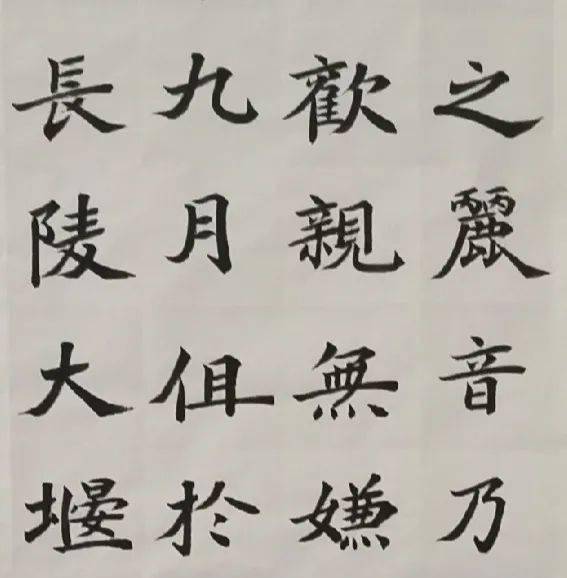 之麗音乃
歡親無嫌
九月伹於
長陵大堰